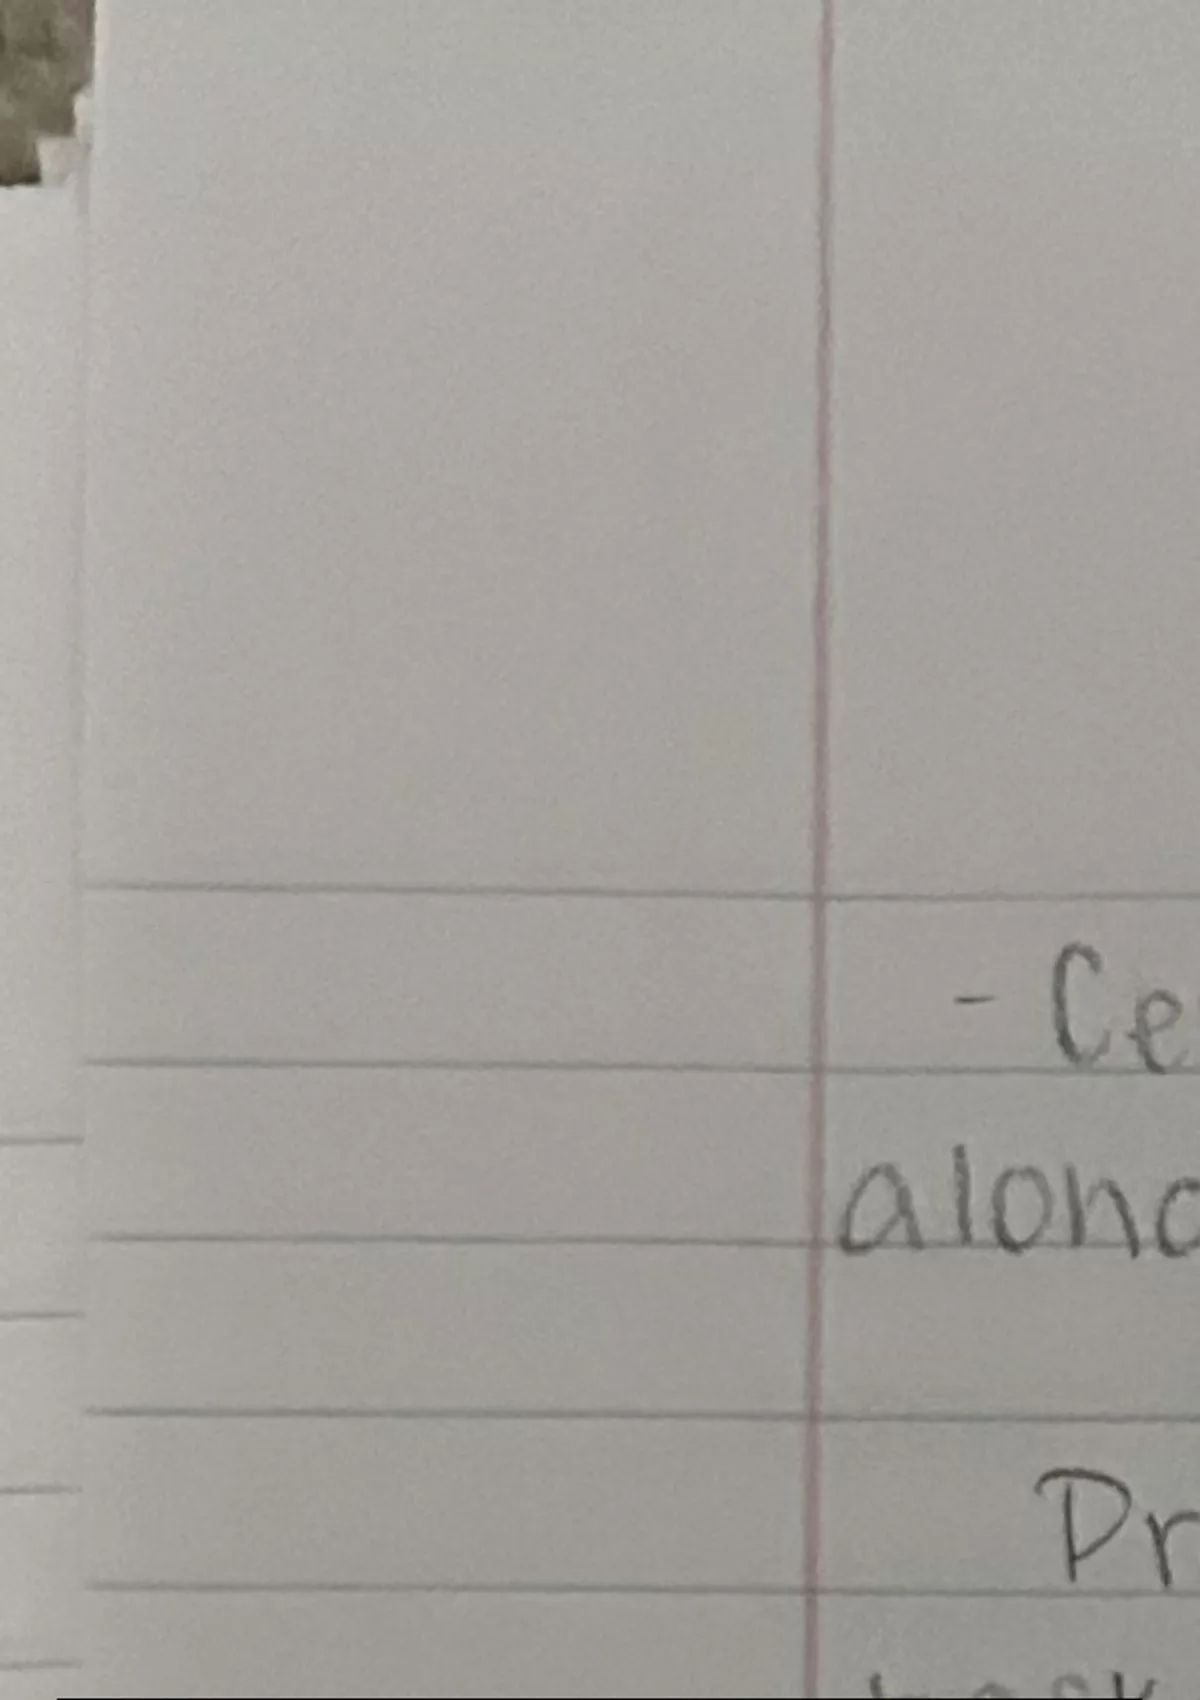 - Ce
alon
Pr